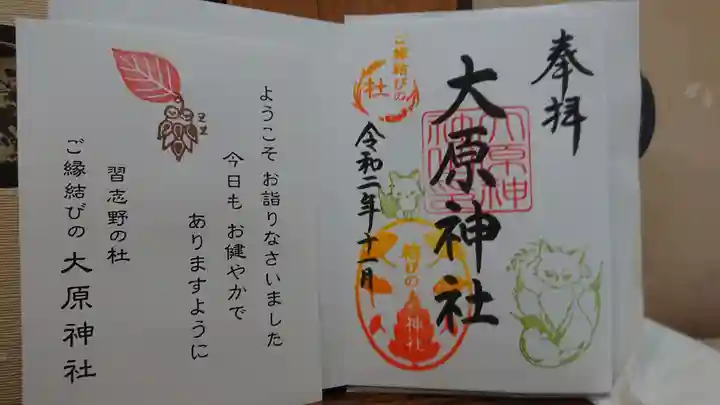 奉拝
大原神社
大原神
令和二年十一月
ご縁結びの
社
結びの
神社
ようこそ お詣りなさいました
今日も お健やかで
ありますように
習志野の杜
ご縁結びの 大原神社